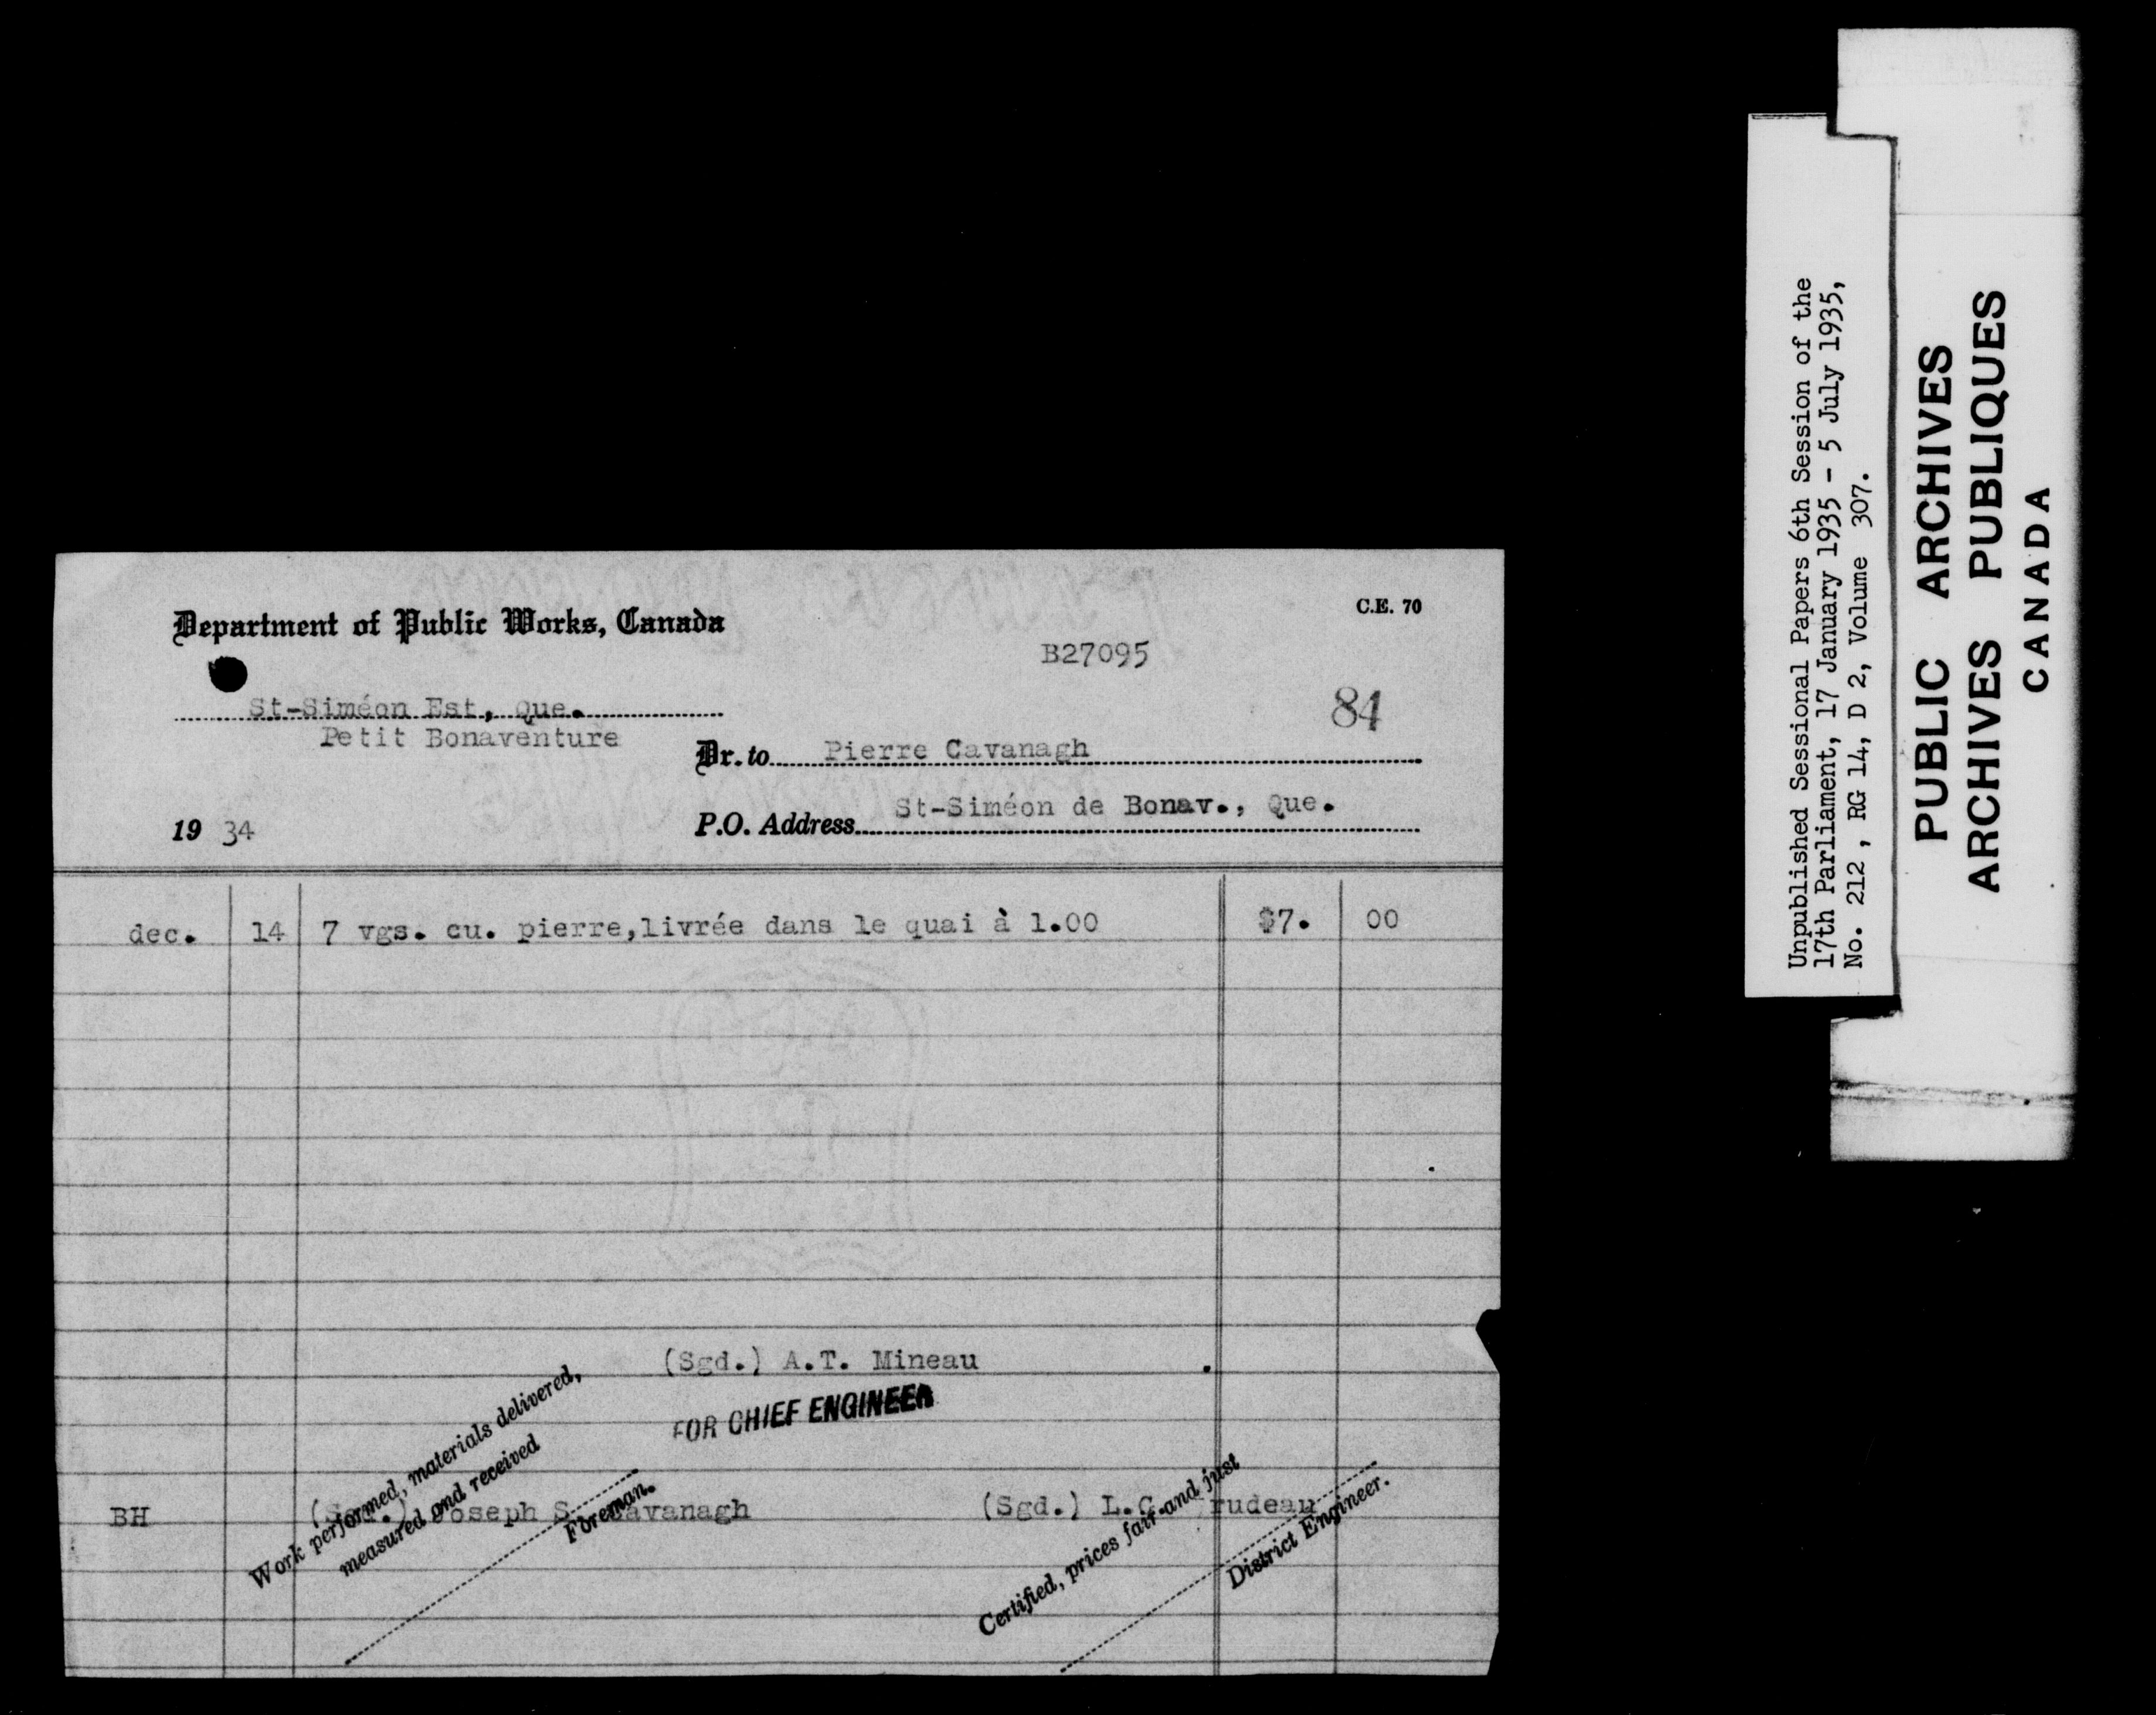 Department of Public Works, Canada
C.E. 70
B27095
84
St-Siméon Est, Que.
Petit Bonaventure
Dr. to Pierre Cavanagh
P.O. Address St-Siméon de Bonav., Que.
19 34
dec. 14 7 vgs. cu. pierre,livrée dans le quai à 1.00 $7. 00
(Sgd.) A.T. Mineau
FOR CHIEF ENGINEER
BH (Sgd.) Joseph S. Cavanagh (Sgd.) L.G. Trudeau
Work performed, materials delivered,
measured and received
Foreman.
Certified, prices fair and just
District Engineer.
Unpublished Sessional Papers 6th Session of the
17th Parliament, 17 January 1935 - 5 July 1935,
No. 212 , RG 14, D 2, Volume 307.
PUBLIC ARCHIVES
ARCHIVES PUBLIQUES
CANADA